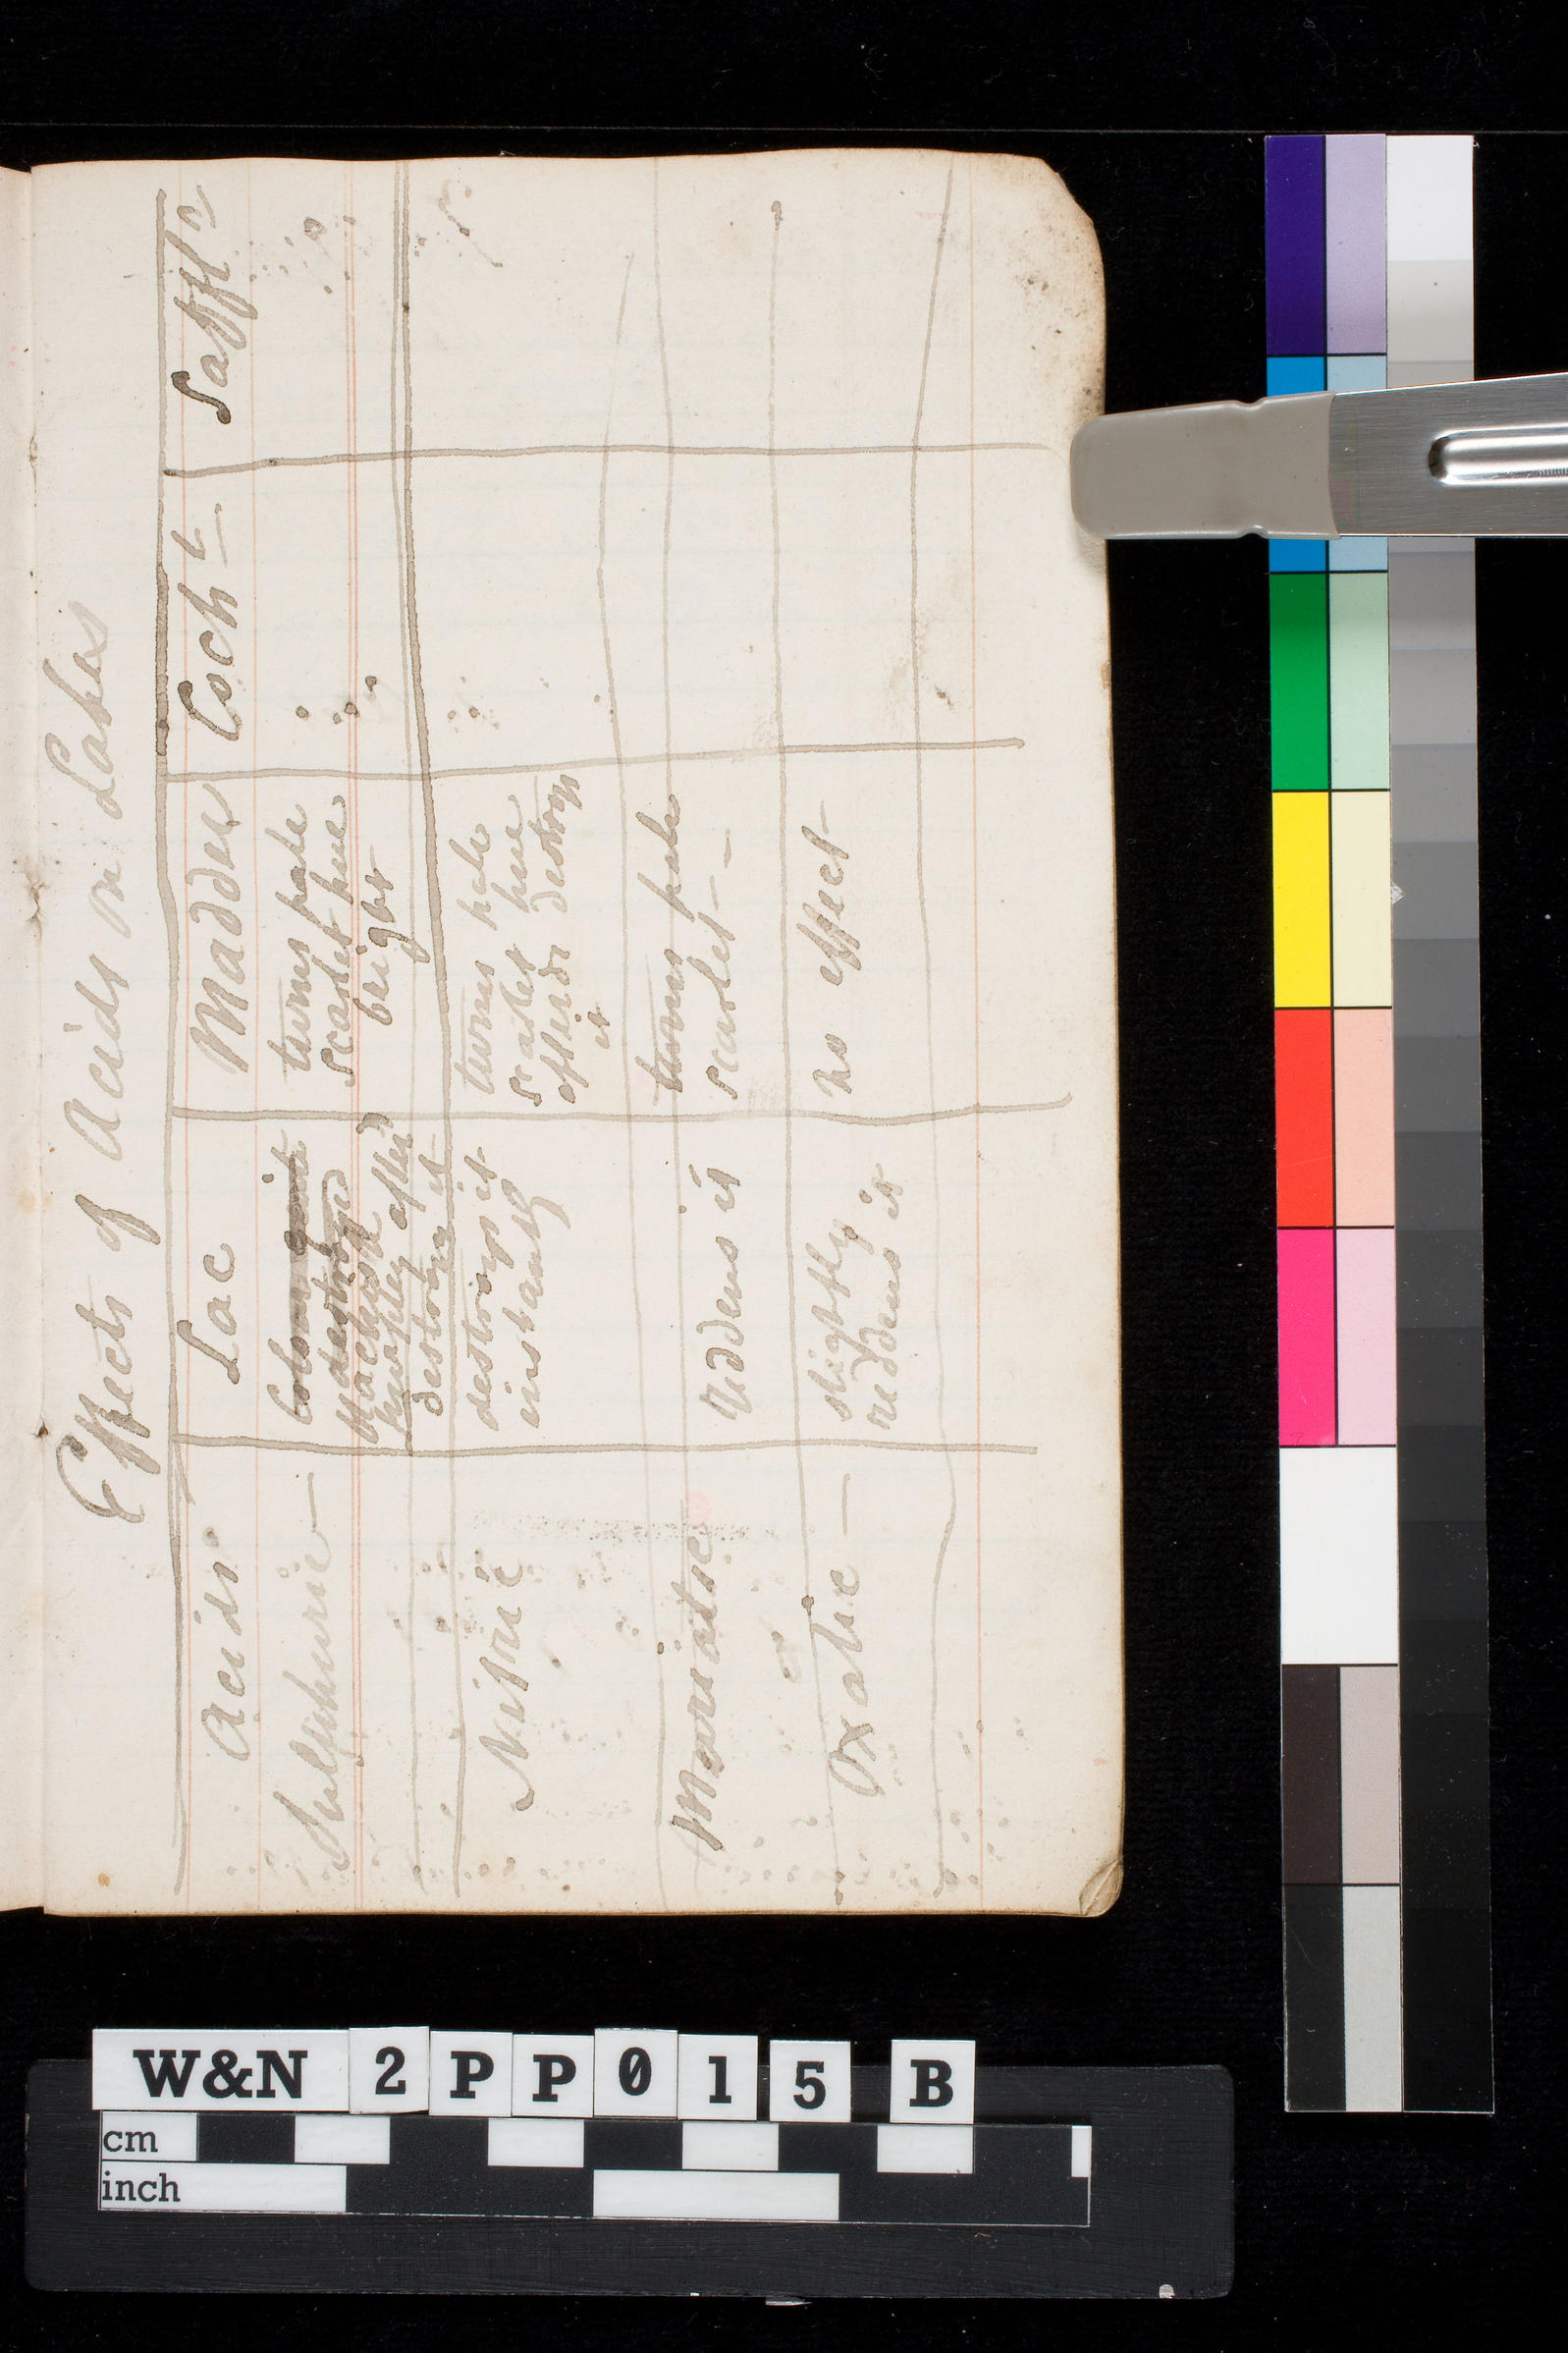 Effects of Acids on Lakes
Acids Lac Madder Coch^l. Saffl^r
Sulphuric — Colour quite destroyed Blackish purple after destroys it
turns pale scarlet hue bright
Nitric destroys it instantly
turns pale scarlet hue afterds destroys it
Muriatic Reddens it
turns pale scarlet —
Oxalic — slightly reddens it
no effect
W&N 2PP015 B
cm
inch